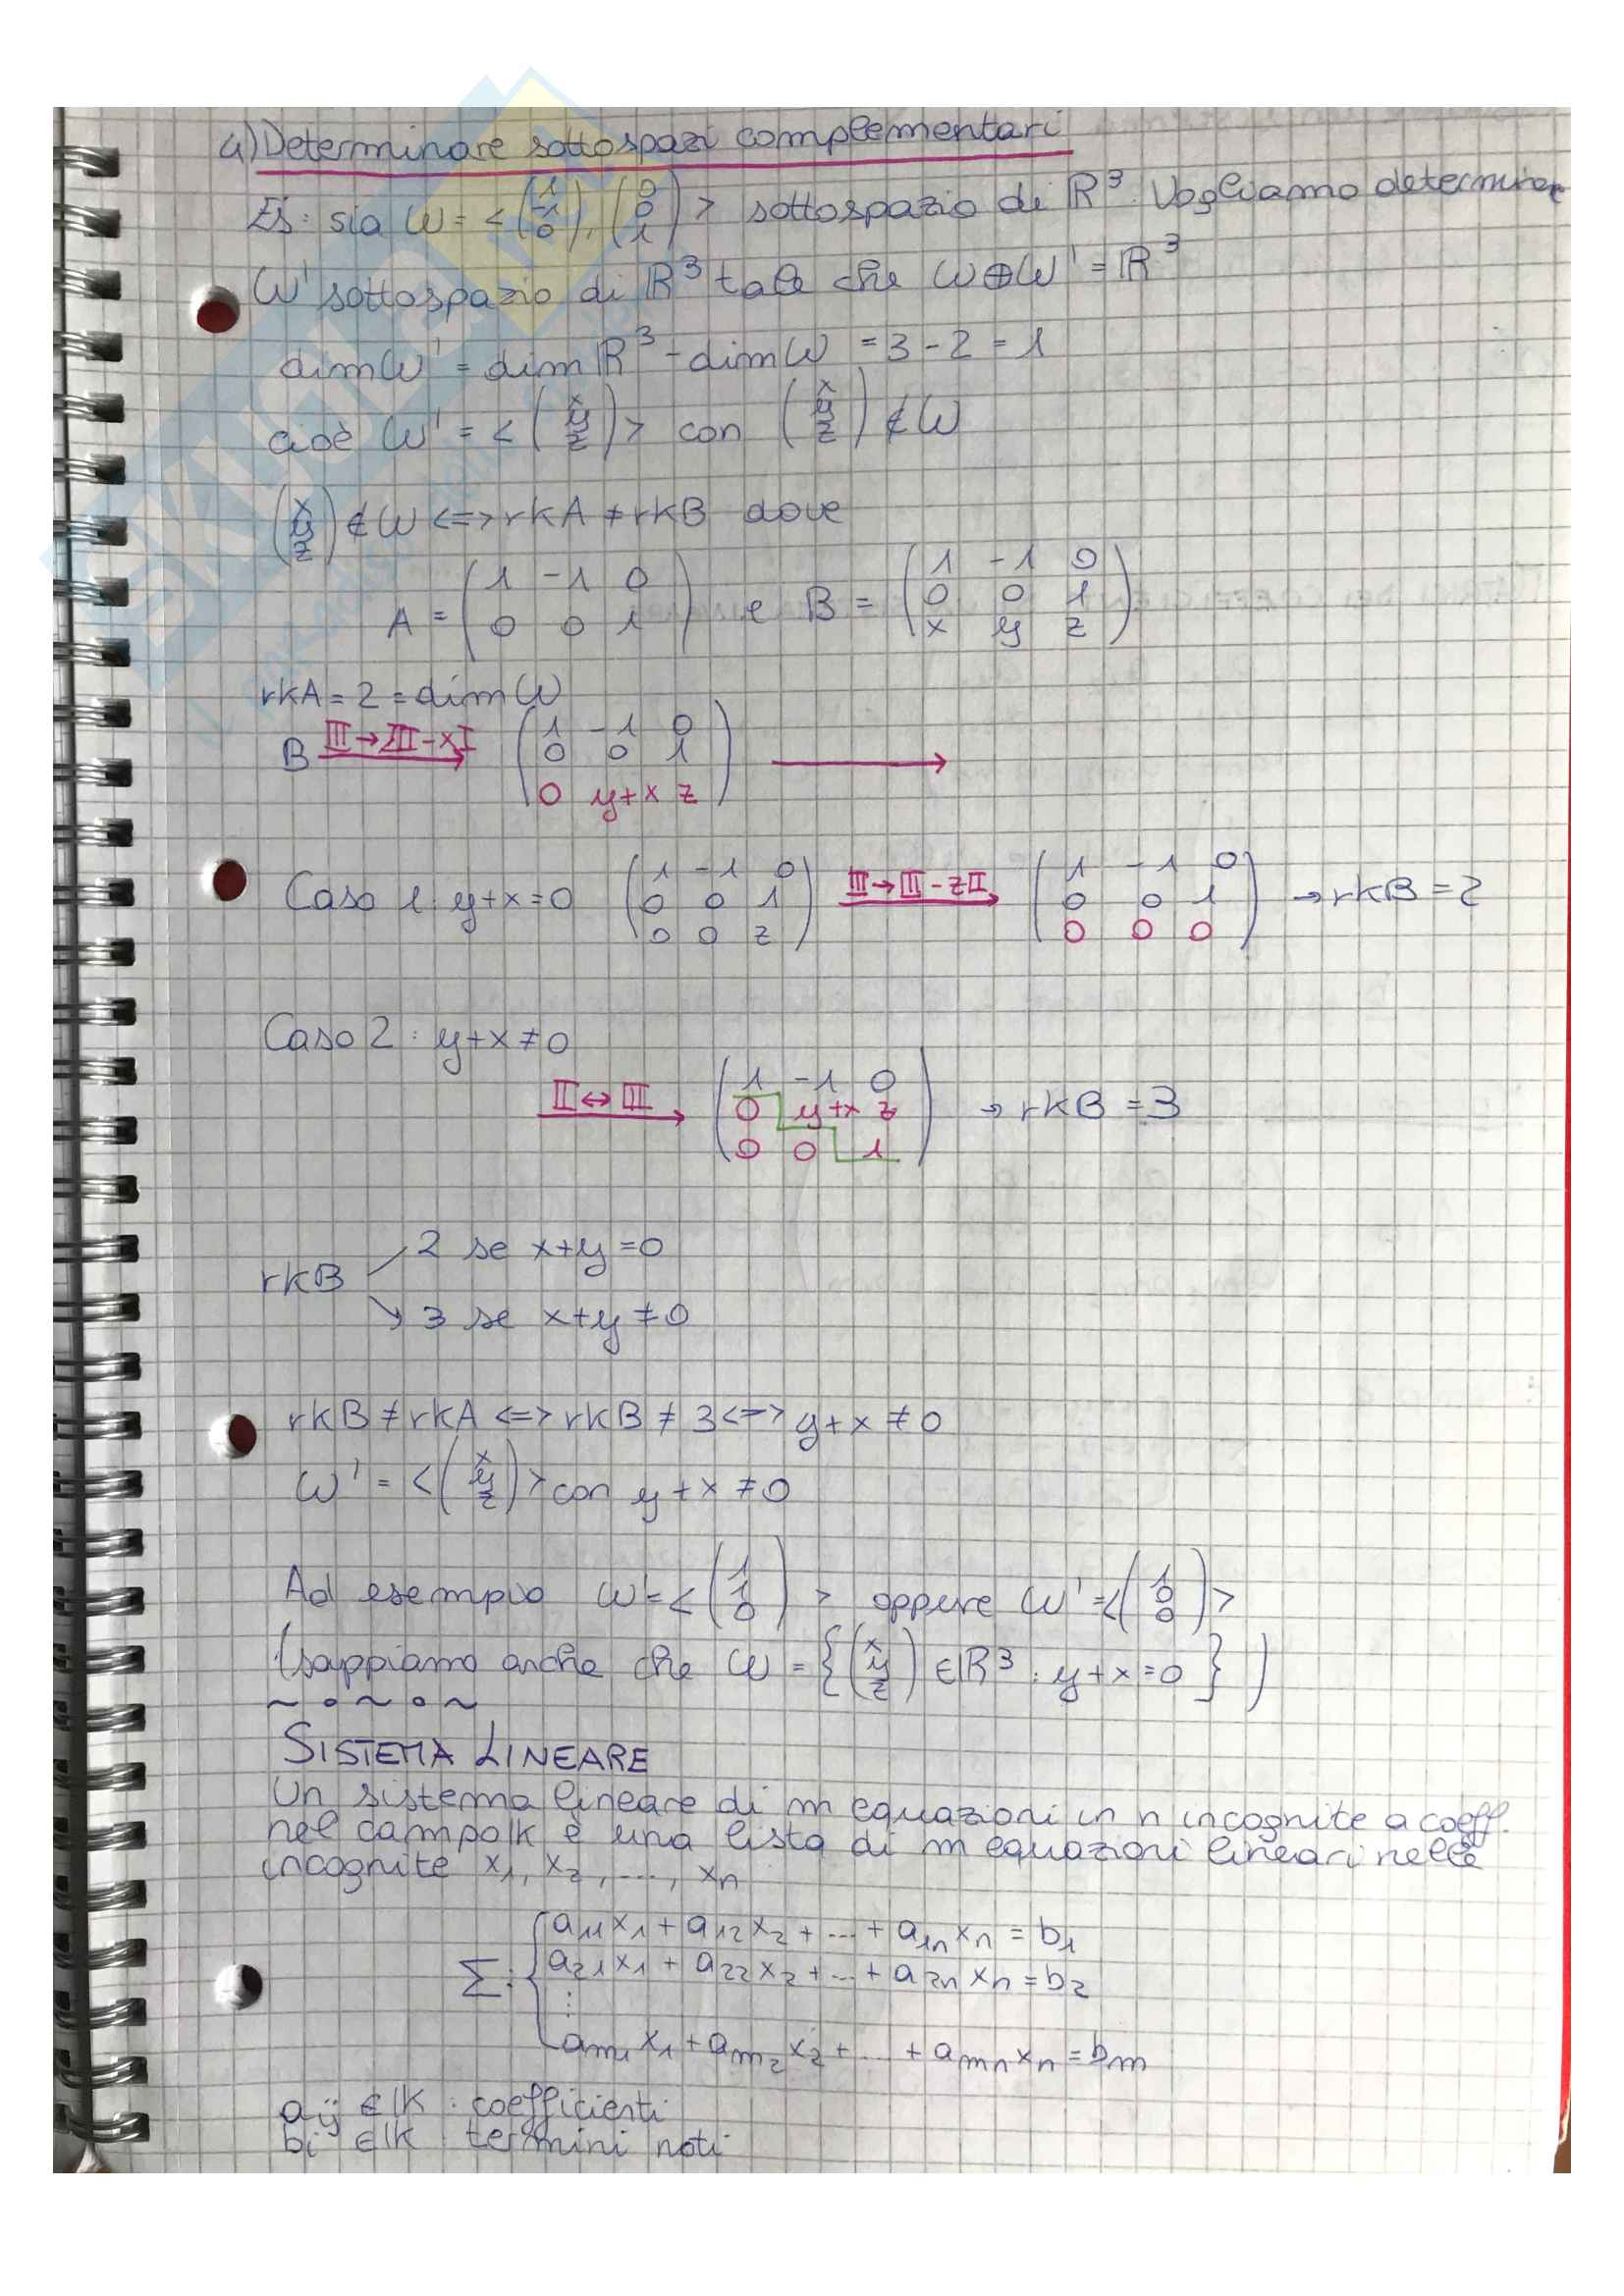 4) Determinare sottospazi complementari
Es: sia W = < (1 -1 0), (0 0 1) > sottospazio di ℝ³. Vogliamo determinare
W' sottospazio di ℝ³ tale che W⊕W' = ℝ³
dim W' = dim ℝ³ - dim W = 3 - 2 = 1
cioè W' = < (x y z) > con (x y z) ∉ W
(x y z) ∉ W <=> rkA ≠ rkB dove
A = (1 -1 0 / 0 0 1) e B = (1 -1 0 / 0 0 1 / x y z)
rkA = 2 = dim W
B III→III-xI (1 -1 0 / 0 0 1 / 0 y+x z) →
Caso 1: y+x=0 (1 -1 0 / 0 0 1 / 0 0 z) III→III-zII (1 -1 0 / 0 0 1 / 0 0 0) → rkB = 2
Caso 2: y+x≠0
II↔III (1 -1 0 / 0 y+x z / 0 0 1) → rkB = 3
rkB
2 se x+y=0
3 se x+y≠0
rkB ≠ rkA <=> rkB ≠ 3 <=> y+x ≠ 0
W' = < (x y z) > con y+x ≠ 0
Ad esempio W' = < (1 1 0) > oppure W' = < (1 0 0) >
(sappiamo anche che W = {(x y z) ∈ ℝ³ : y+x=0})
~ ∘ ~ ∘ ~
SISTEMA LINEARE
Un sistema lineare di m equazioni in n incognite a coeff.
nel campo 𝕂 è una lista di m equazioni lineari nelle
incognite x₁, x₂, ..., xₙ
Σ: { a₁₁x₁ + a₁₂x₂ + ... + a₁ₙxₙ = b₁
a₂₁x₁ + a₂₂x₂ + ... + a₂ₙxₙ = b₂
⋮
aₘ₁x₁ + aₘ₂x₂ + ... + aₘₙxₙ = bₘ
aᵢⱼ ∈ 𝕂 : coefficienti
bᵢ ∈ 𝕂 : termini noti